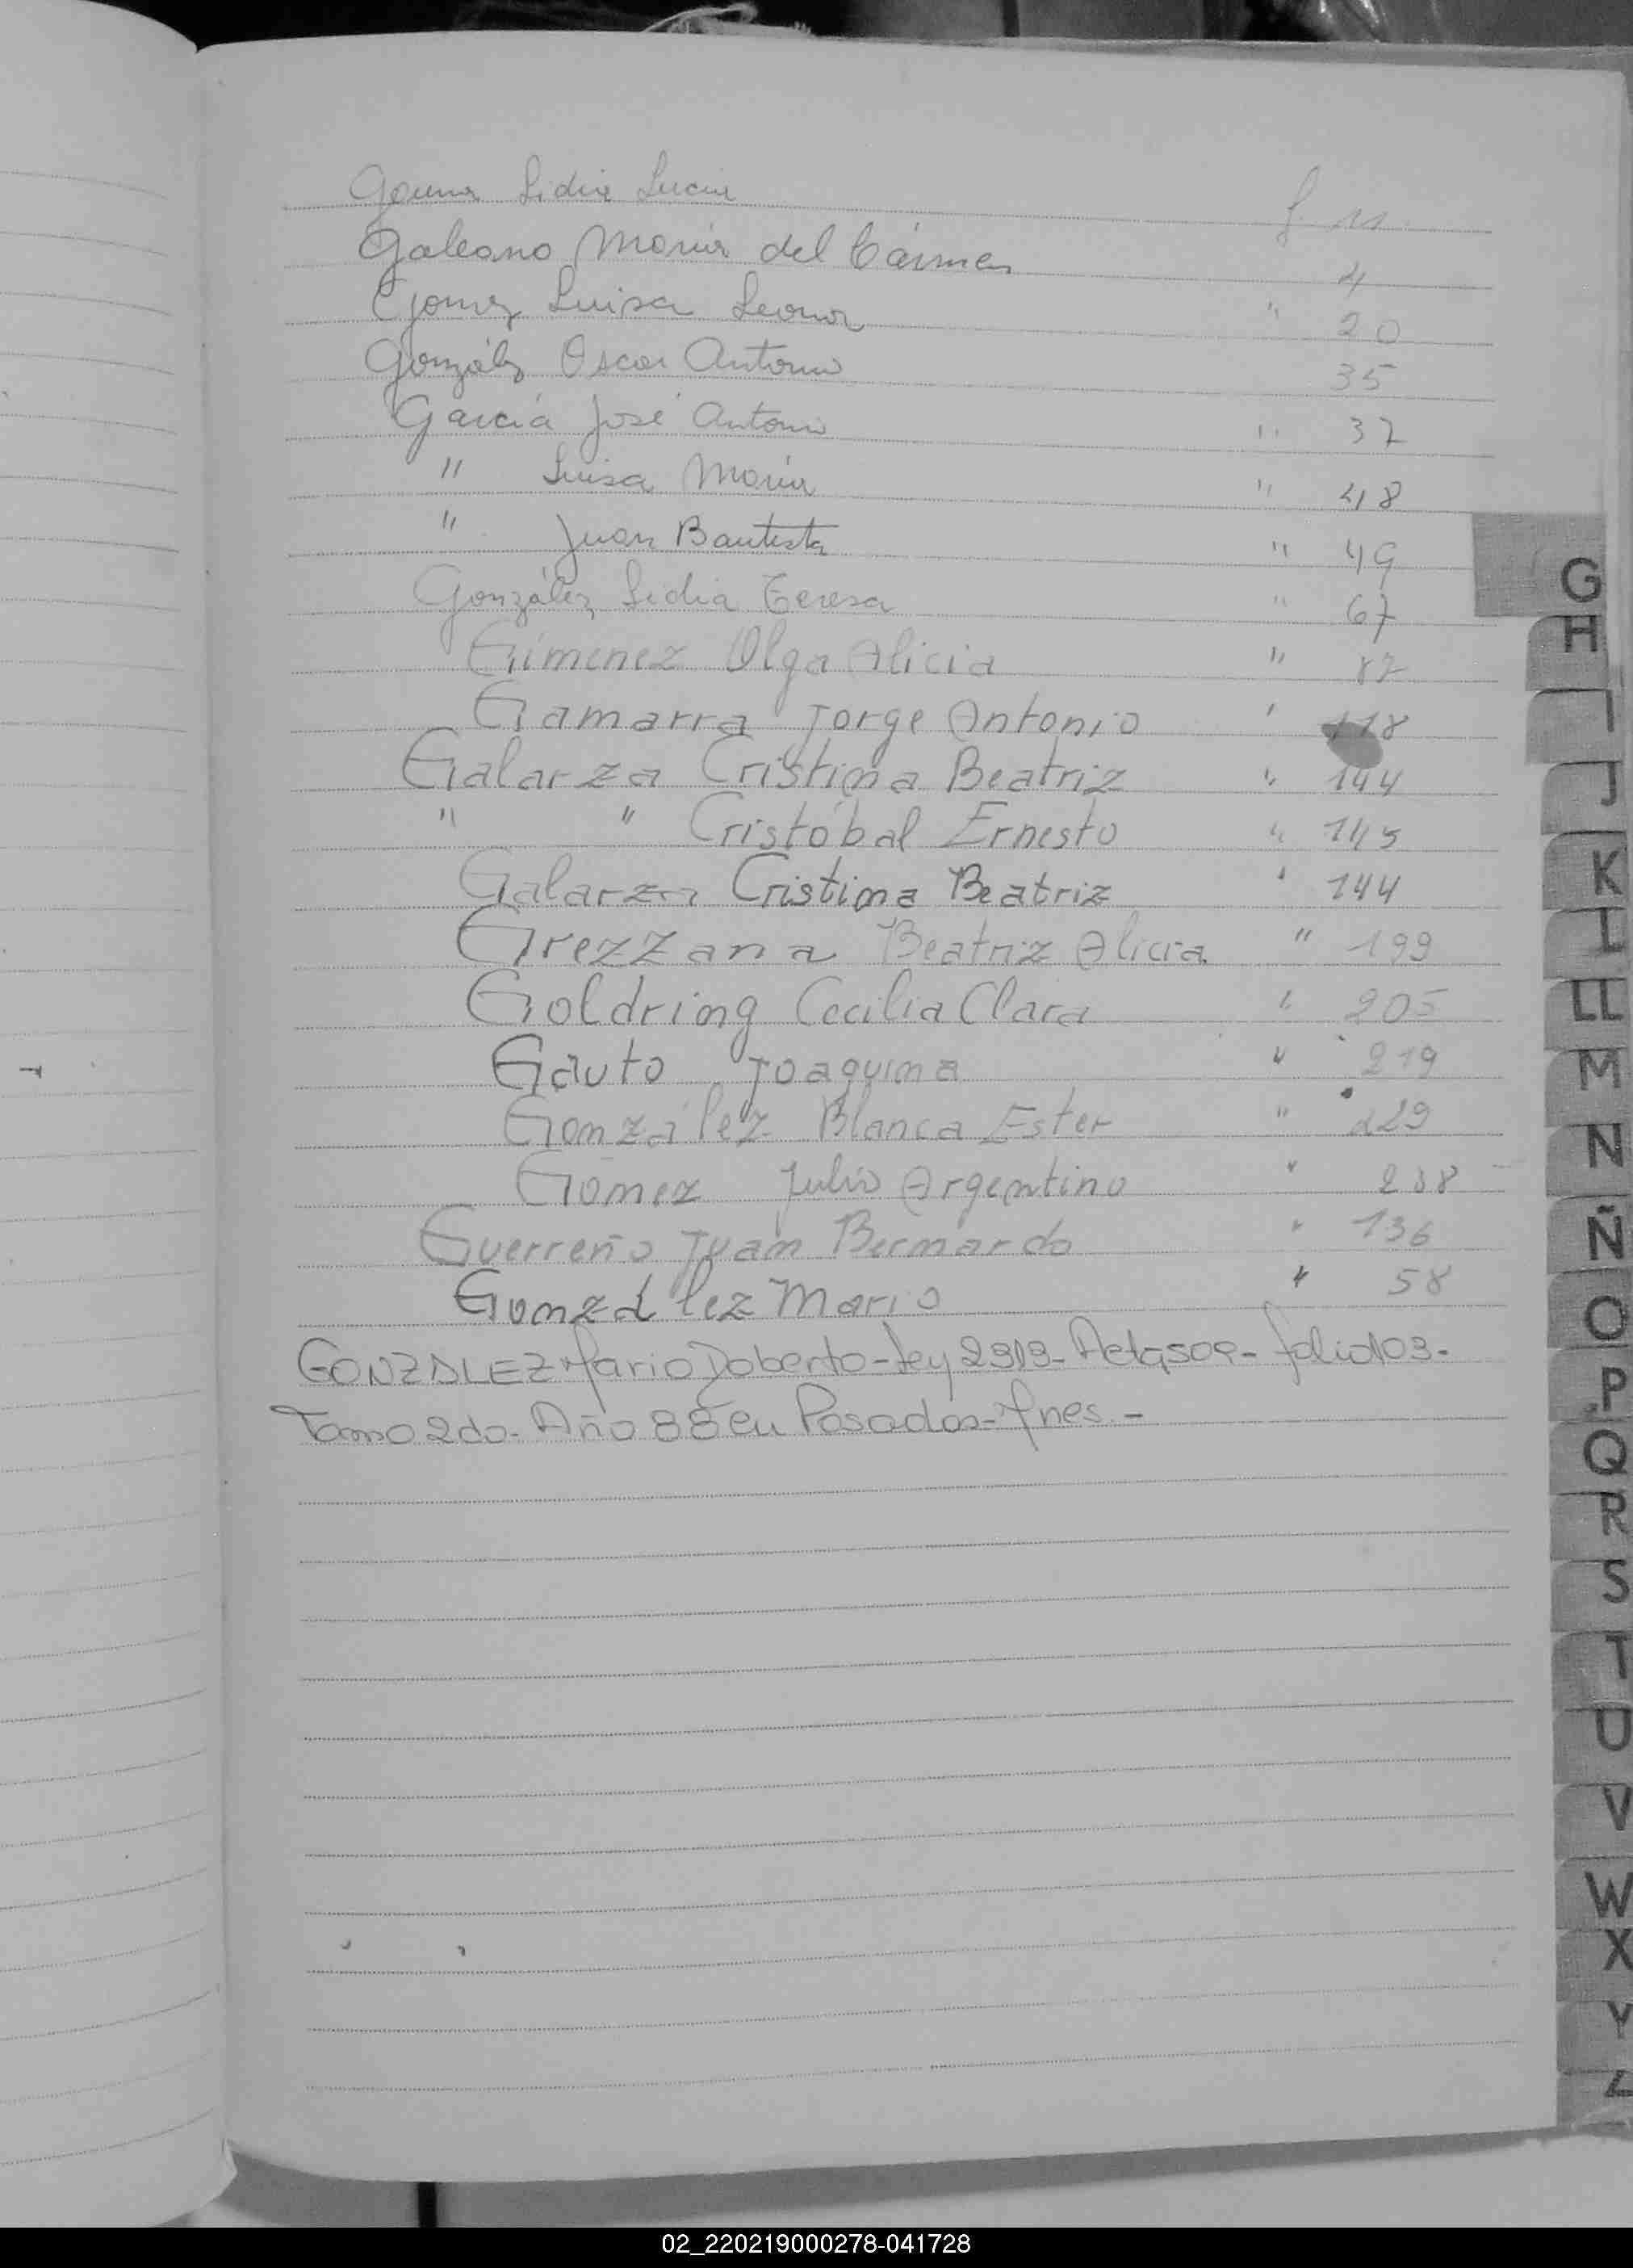 Gouna Lidia Lucia f. 11
Galeano María del Cármen 4
Gomez Luisa Leonor " 20
González Oscar Antonio 35
García José Antonio " 37
" Luisa María " 48
" Juan Bautista " 49
González Lidia Teresa " 67
Gimenez Olga Alicia " 87
Gamarra Jorge Antonio ' 118
Galarza Cristina Beatriz " 144
" " Cristóbal Ernesto " 145
Galarza Cristina Beatriz ' 144
Grezzana Beatriz Alicia " 199
Goldring Cecilia Clara " 205
Gauto Joaquina " 219
González Blanca Ester " 229
Gomez Julio Argentino " 238
Guerreño Juan Bernardo " 136
González Mario " 58
GONZALEZ Mario Roberto-Ley 2313- Acta 509- folio 103-
Tomo 2do- Año 88 en Posadas-Mnes.-
G
H
I
J
K
L
LL
M
N
Ñ
O
P
Q
R
S
T
U
V
W
X
Y
Z
02_220219000278-041728